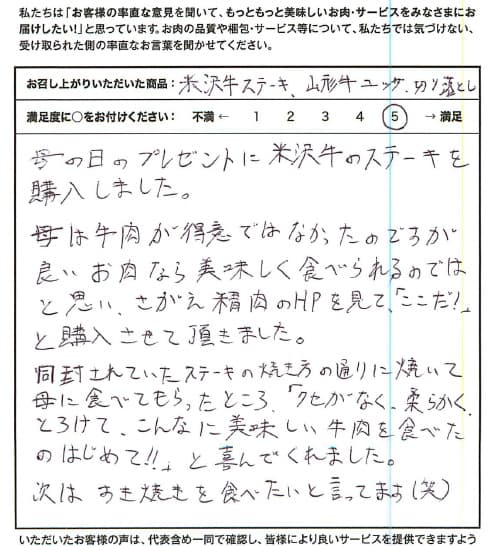 私たちは「お客様の率直な意見を聞いて、もっともっと美味しいお肉・サービスをみなさまにお
届けしたい!」と思っています。お肉の品質や梱包・サービス等について、私たちでは気づけない、
受け取られた側の率直なお言葉を聞かせてください。
お召し上がりいただいた商品: 米沢牛ステーキ、山形牛ユッケ、切り落とし
満足度に○をお付けください: 不満 ← 1 2 3 4 5 → 満足
母の日のプレゼントに米沢牛のステーキを
購入しました。
母は牛肉が得意ではなかったのですが
良いお肉なら美味しく食べられるのでは
と思い、さがえ精肉のHPを見て、「ここだ!」
と購入させて頂きました。
同封されていたステーキの焼き方の通りに焼いて
母に食べてもらったところ、「クセがなく、柔らかく、
とろけて、こんなに美味しい牛肉を食べた
のはじめて!!」と喜んでくれました。
次はすき焼きを食べたいと言ってます(笑)
いただいたお客様の声は、代表含め一同で確認し、皆様により良いサービスを提供できますよう